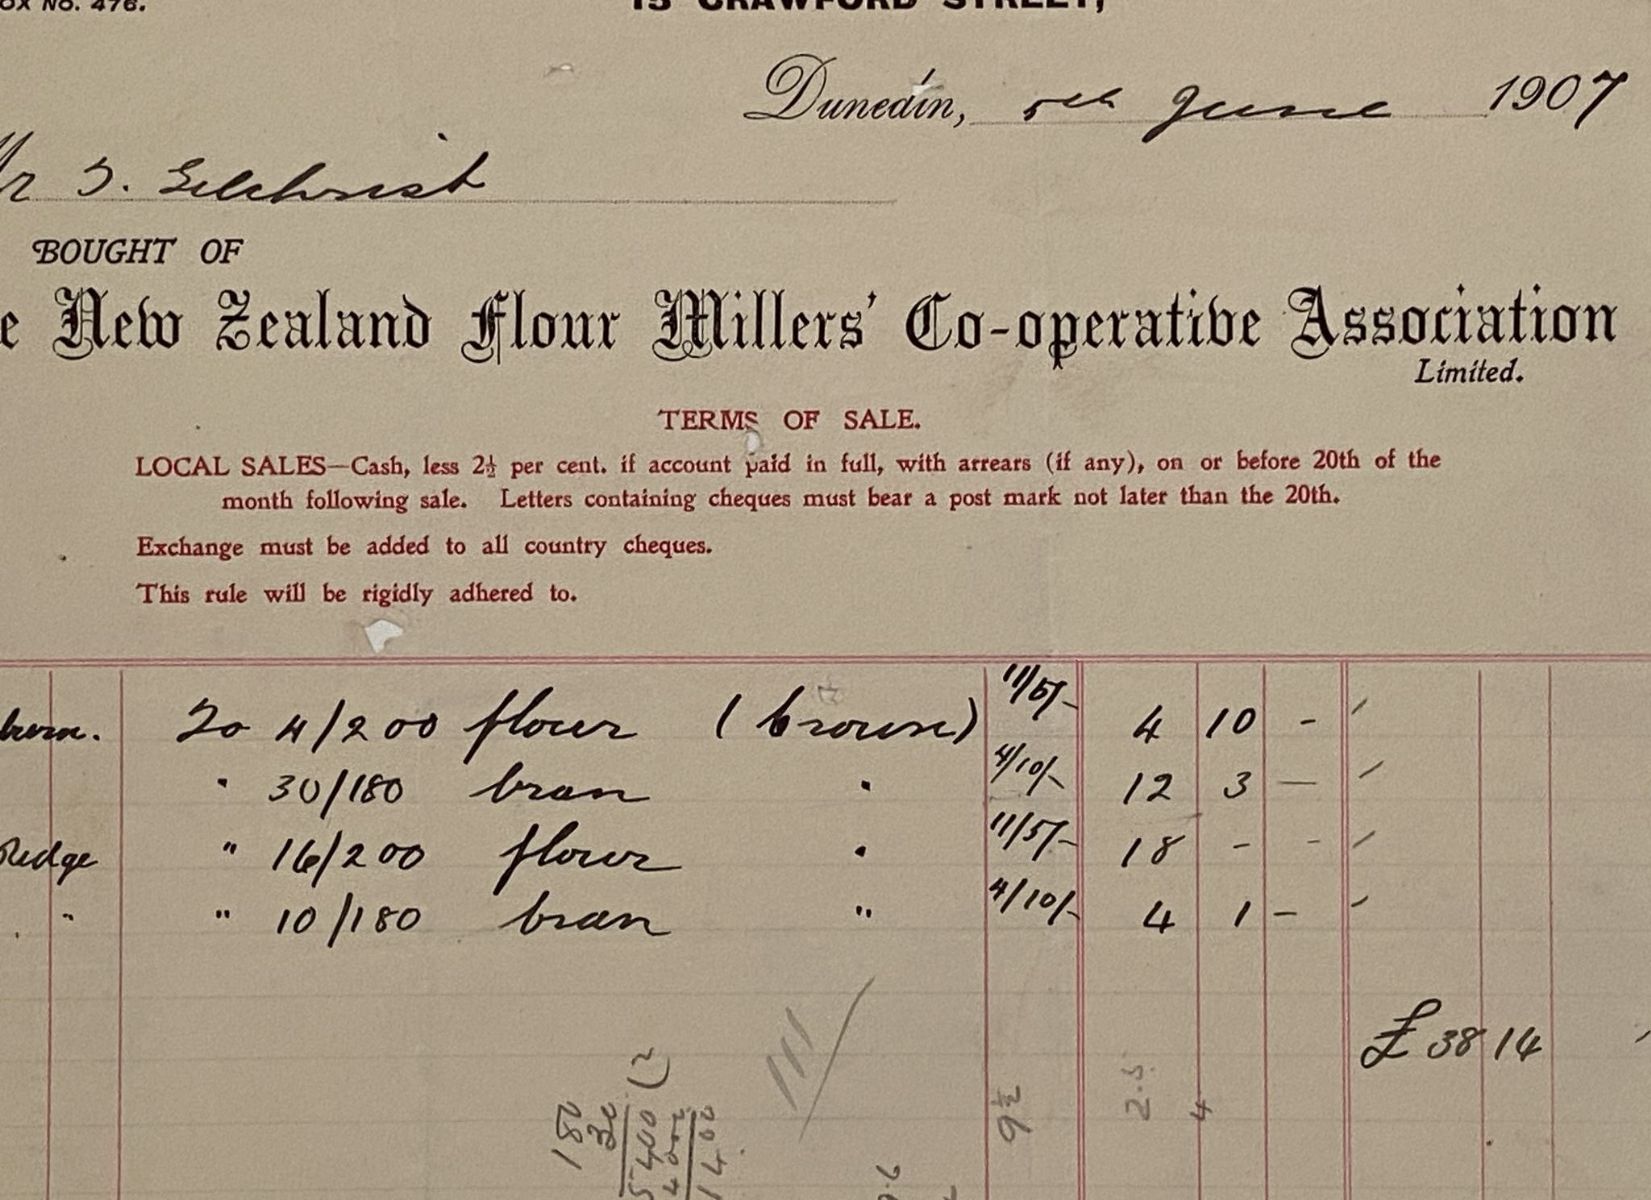 OX NO. 476.
15 CRAWFORD STREET,
Dunedin, 5th June 1907
Mr T. Gilchrist
BOUGHT OF
e New Zealand Flour Millers' Co-operative Association
Limited.
TERMS OF SALE.
LOCAL SALES—Cash, less 2½ per cent. if account paid in full, with arrears (if any), on or before 20th of the
month following sale. Letters containing cheques must bear a post mark not later than the 20th.
Exchange must be added to all country cheques.
This rule will be rigidly adhered to.
burn. To 4/200 flour (brown) 11/5/- 4 10 -
" 30/180 bran " 4/10/- 12 3 —
Ridge " 16/200 flour " 11/5/- 18 - -
" " 10/180 bran " 4/10/- 4 1 –
£ 38 14
180
30
5400
2
9½
2.5.
4